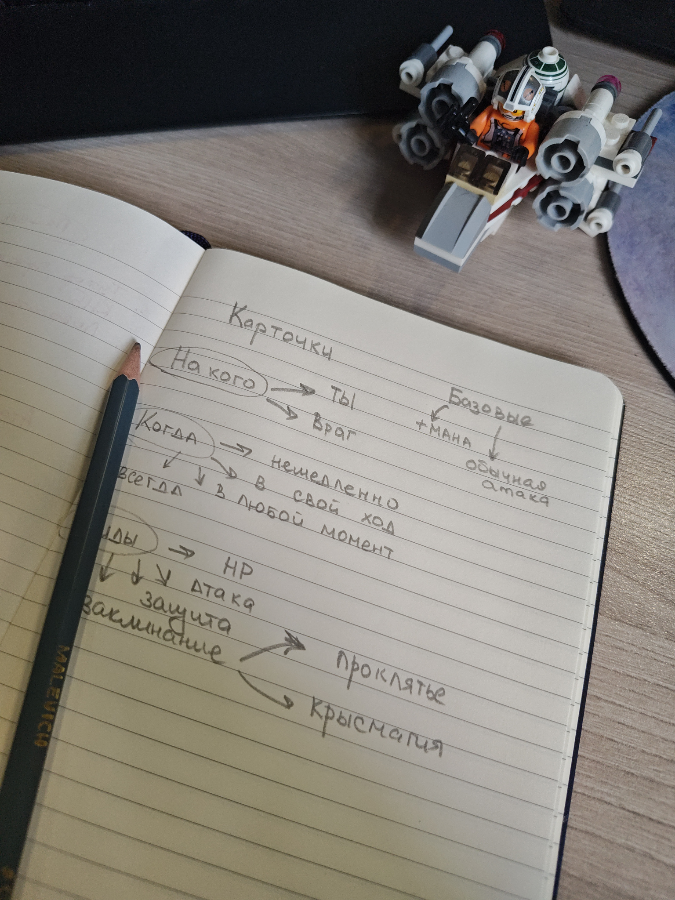 Карточки
На кого
Ты
Враг
Базовые
+мана
обычная
атака
Когда
немедленно
в свой ход
в любой момент
всегда
HP
Атака
Защита
Заклинание
проклятье
крысмагия
MALEVICH